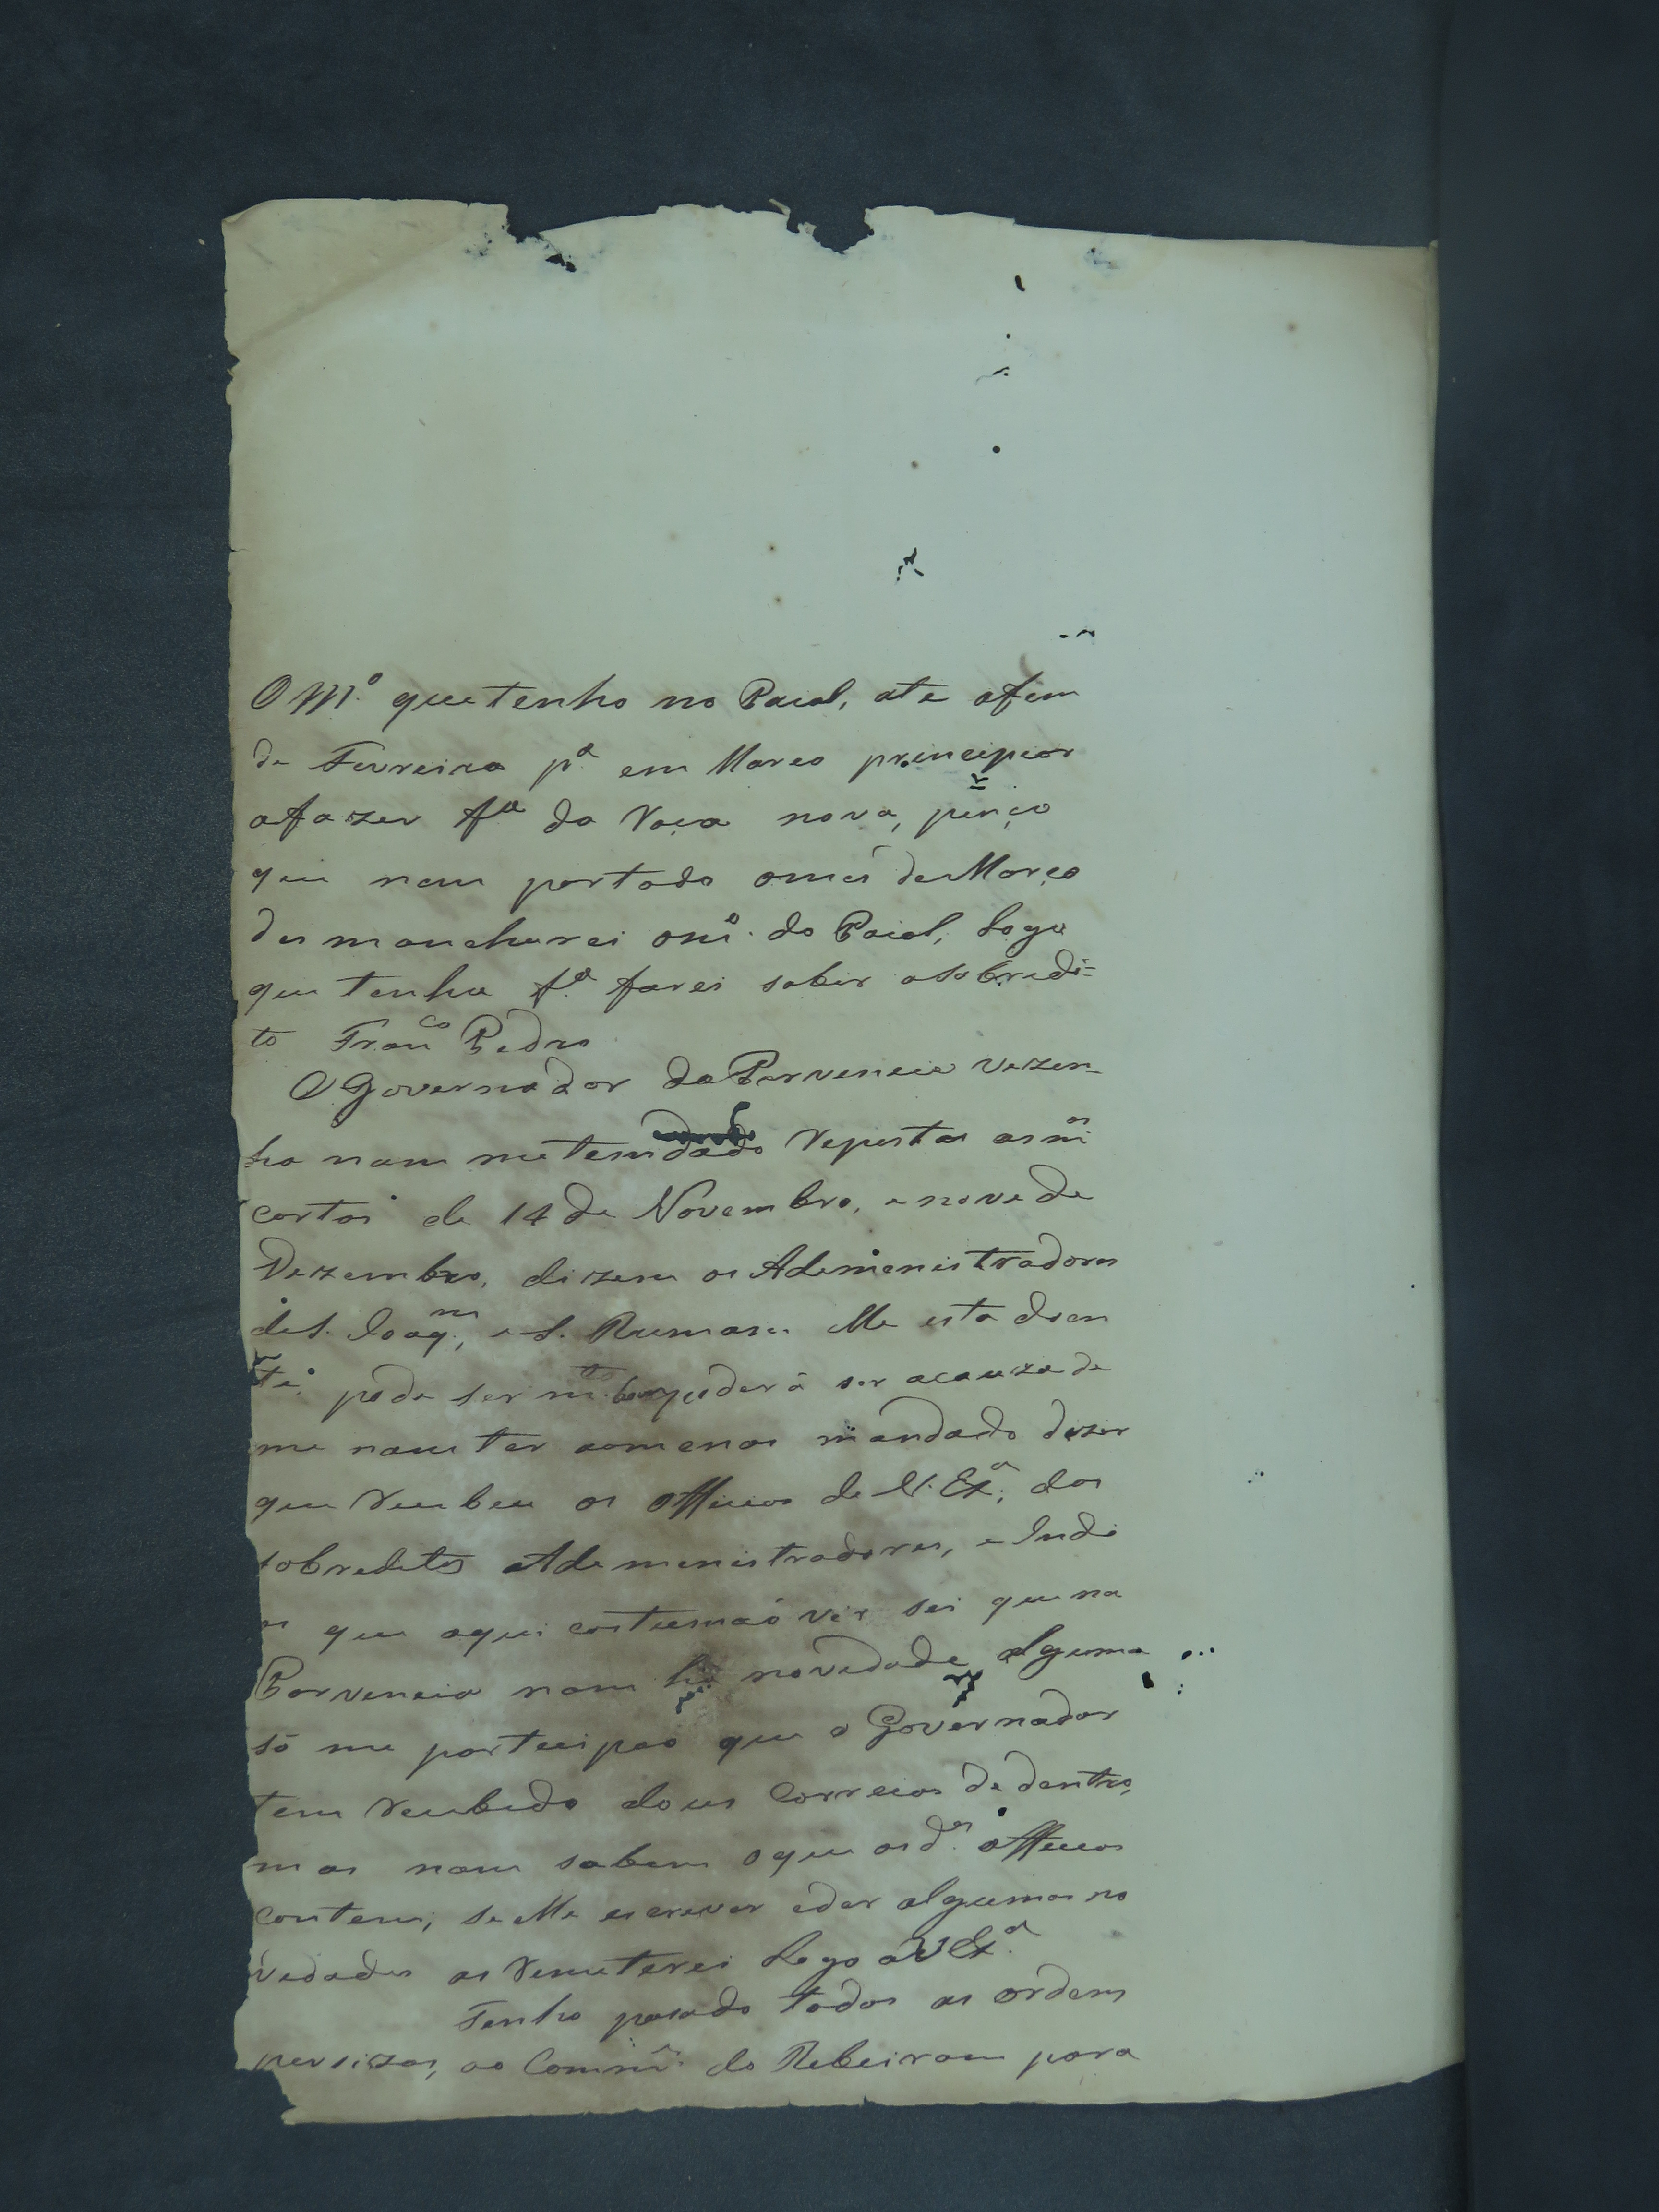 O M.º que tenho no Paiol, ate afim
de Fevreiro p.ª em Marco principiar
afazer f.ª da Roça nova, penço
que nem portado omes de Março
desmancharei omº. do Paiol, Logo
que tenha f.ª farei saber aSobredi=
to Fran.co Pedro
O Governador daPorvencia vezen-
ha nam metem dado Reposta as m.as
cartas de 14 de Novembro, e nove de
Dezembro, dizem os Ademenistradores
de S. Joaq.m, e S. Lhe esta doen
te, pode ser poderá ser acauza de
me nam ter aomenos mandado dizer
que Recebeu os officios de V. Ex.ª, dos
sobreditos Ademenistradores, e Indi
os que aqui costumaó vir sei que na
Porvencia nam há novedade alguma
só me partecipaó que o Governador
tem Recebido dous Correios de dentro,
mas nam sabem oque os d.os officios
contem, se Me escrever eder algumas no
vedades as Remeterei Logo aV Ex.ª
Tenho pasado todas as ordems
persizas, ao Comm.e do Rebeiram para